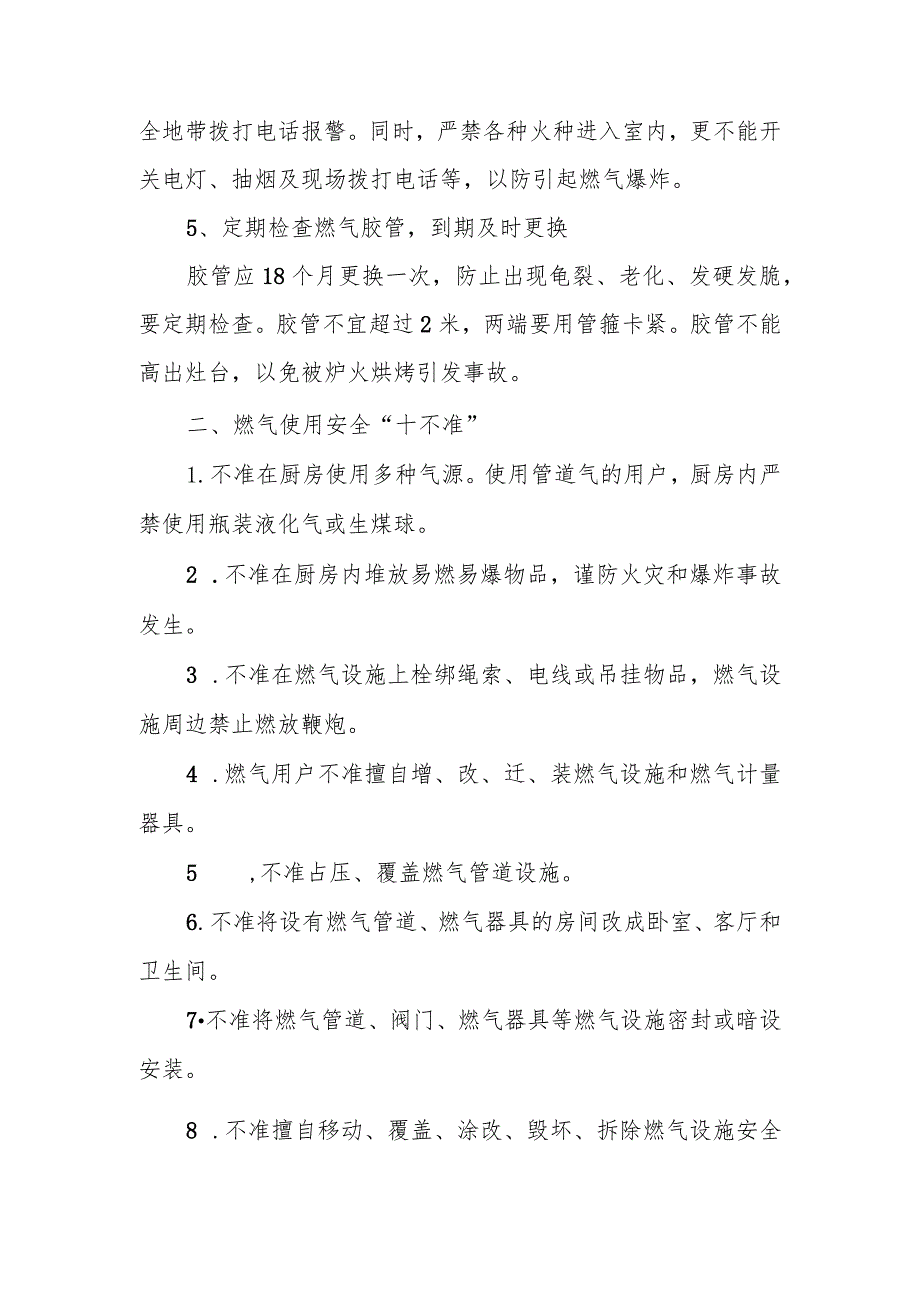 全地带拨打电话报警。同时，严禁各种火种进入室内，更不能开
关电灯、抽烟及现场拨打电话等，以防引起燃气爆炸。
5、定期检查燃气胶管，到期及时更换
胶管应 18 个月更换一次，防止出现龟裂、老化、发硬发脆，
要定期检查。胶管不宜超过 2 米，两端要用管箍卡紧。胶管不能
高出灶台，以免被炉火烘烤引发事故。
二、燃气使用安全“十不准”
1. 不准在厨房使用多种气源。使用管道气的用户，厨房内严
禁使用瓶装液化气或生煤球。
2 .不准在厨房内堆放易燃易爆物品，谨防火灾和爆炸事故
发生。
3 .不准在燃气设施上栓绑绳索、电线或吊挂物品，燃气设
施周边禁止燃放鞭炮。
4 .燃气用户不准擅自增、改、迁、装燃气设施和燃气计量
器具。
5 ,不准占压、覆盖燃气管道设施。
6. 不准将设有燃气管道、燃气器具的房间改成卧室、客厅和
卫生间。
7•不准将燃气管道、阀门、燃气器具等燃气设施密封或暗设
安装。
8 .不准擅自移动、覆盖、涂改、毁坏、拆除燃气设施安全